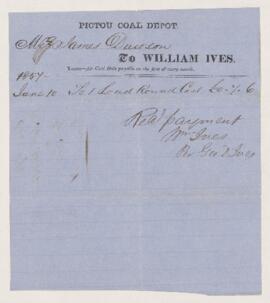 PICTOU COAL DEPOT.
James Dawson
To WILLIAM IVES.
Terms—for Coal Bills payable on the first of every month.
1857
June 10 To 1 Load Round Coal £0-7-6
Recd payment
Wm Ives
Per Geo D Ives